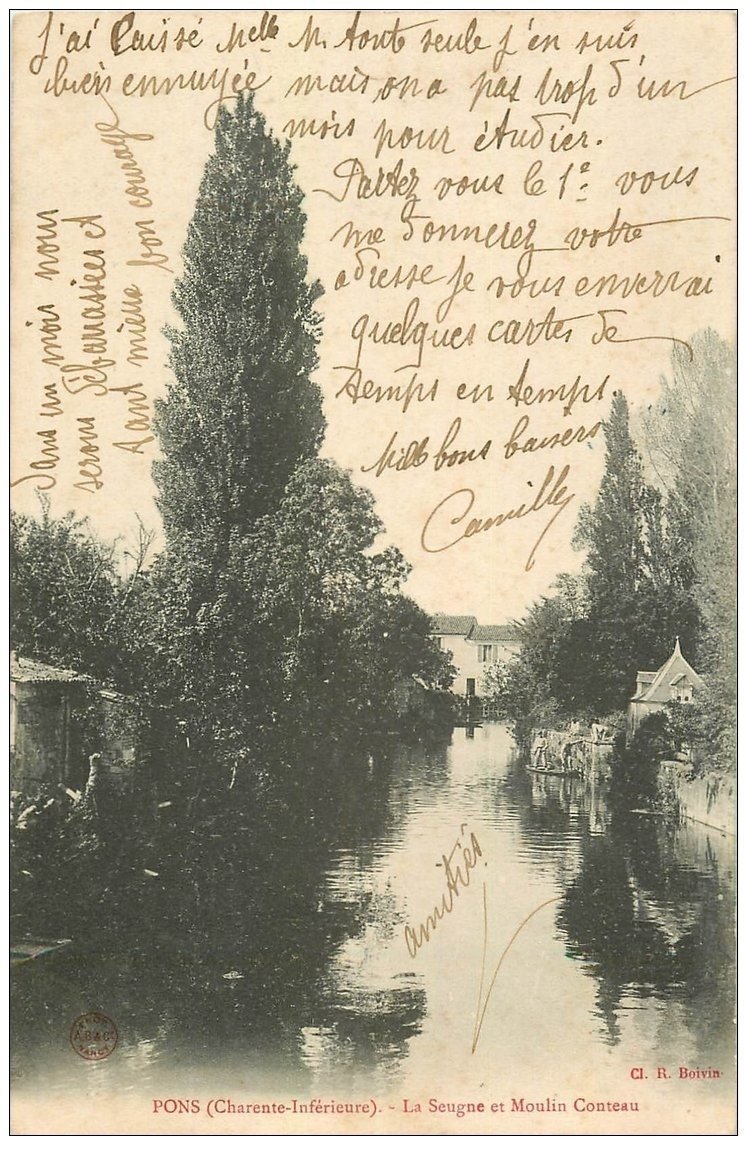 J'ai laissé Melle M. toute seule j'en suis
bien ennuyée mais on a pas trop d'un
mois pour étudier.
Partez vous le 1e. vous
me donnerez votre
adresse je vous enverrai
quelques cartes de
temps en temps.
Mille bons baisers
Camille
Dans un mois nous
serons débarrassées et
tant mieux bon courage
amitiés
A.B.&C
NANCY
Cl. R. Boivin
PONS (Charente-Inférieure). - La Seugne et Moulin Conteau